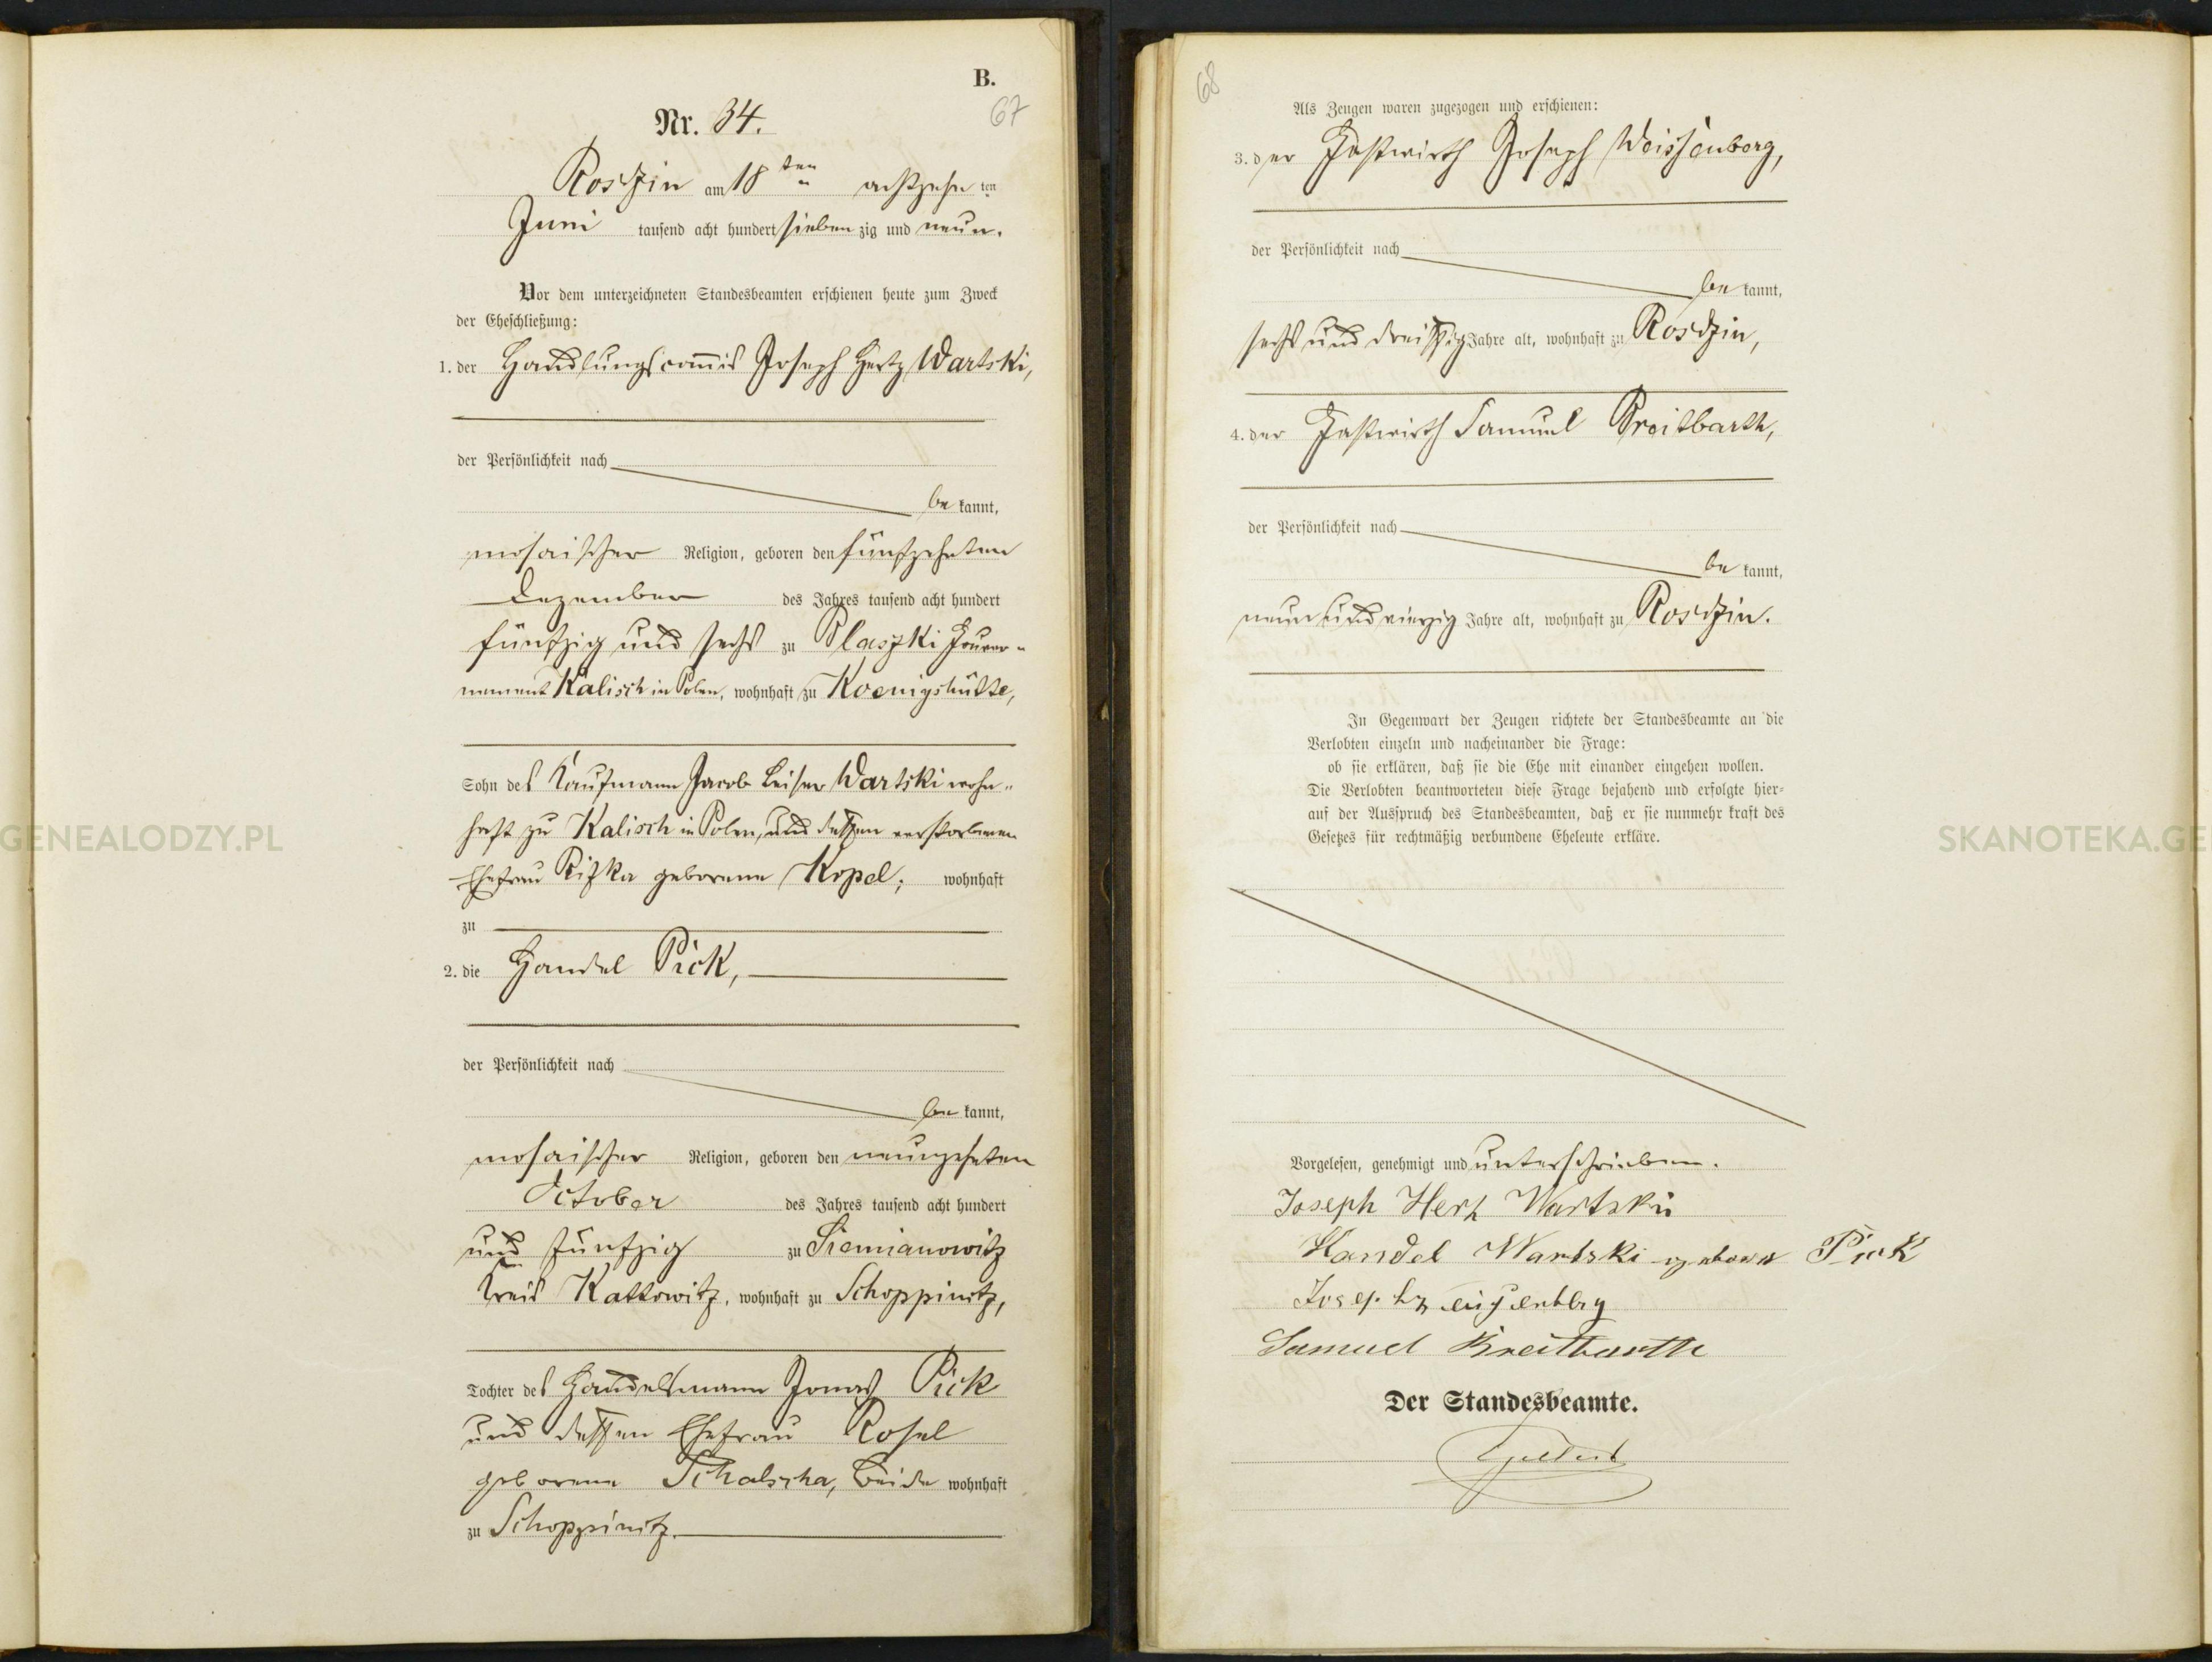 B.
67
Nr. 34.
Rosdzin am 18 ten achtzehn ten
Juni tausend acht hundert sieben zig und neun.
Vor dem unterzeichneten Standesbeamten erschienen heute zum Zweck
der Eheschließung:
1. der Handlungscom̅is Joseph Hertz Wartski,
der Persönlichkeit nach
be kannt,
mosaischer Religion, geboren den fünfzehnten
Dezember des Jahres tausend acht hundert
fünfzig und sechs zu Blaszki Gouver-
nement Kalisch in Polen, wohnhaft zu Koenigshütte,
Sohn des Kaufmann Jacob Leiser Wartski wohn-
haft zu Kalisch in Polen, und dessen verstorbenen
Ehefrau Rifka geborene Kopel; wohnhaft
zu
2. die Handel Pick,
der Persönlichkeit nach
be kannt,
mosaischer Religion, geboren den neunzehnten
October des Jahres tausend acht hundert
und fünfzig zu Siemianowitz
Kreis Kattowitz, wohnhaft zu Schoppinitz,
Tochter des Handelsmann Jonas Pick
und dessen Ehefrau Rosel
geborene Schalscha, beide wohnhaft
zu Schoppinitz.
68
Als Zeugen waren zugezogen und erschienen:
3. der Gastwirth Joseph Weissenberg,
der Persönlichkeit nach
be kannt,
sechs und dreißig Jahre alt, wohnhaft zu Rosdzin,
4. der Gastwirth Samuel Breitbarth,
der Persönlichkeit nach
be kannt,
neun und vierzig Jahre alt, wohnhaft zu Rosdzin.
In Gegenwart der Zeugen richtete der Standesbeamte an die
Verlobten einzeln und nacheinander die Frage:
ob sie erklären, daß sie die Ehe mit einander eingehen wollen.
Die Verlobten beantworteten diese Frage bejahend und erfolgte hier-
auf der Ausspruch des Standesbeamten, daß er sie nunmehr kraft des
Gesetzes für rechtmäßig verbundene Eheleute erkläre.
Vorgelesen, genehmigt und unterschrieben.
Joseph Herz Wartski
Handel Wartski geborne Pick
Samuel Breitbarth
Der Standesbeamte.
GENEALODZY.PL
SKANOTEKA.GE